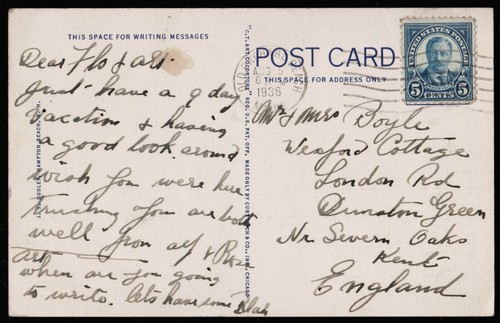 THIS SPACE FOR WRITING MESSAGES
Dear Flo & art.
Just have a 9 day
vacation & having
a good look around
wish you were here
trusting you are both
well from alf &
art
when are you going
to write. lets have some Blah
"C.T. ART-COLORTONE" REG. U.S. PAT. OFF. MADE ONLY BY CURT TEICH & CO., INC., CHICAGO
POST CARD
THIS SPACE FOR ADDRESS ONLY
AUG
6
1936
UNITED STATES POSTAGE
5 CENTS 5
Mr & Mrs Boyle
Wexford Cottage
London Rd
Dunston Green
Nr Severn Oaks
Kent
England